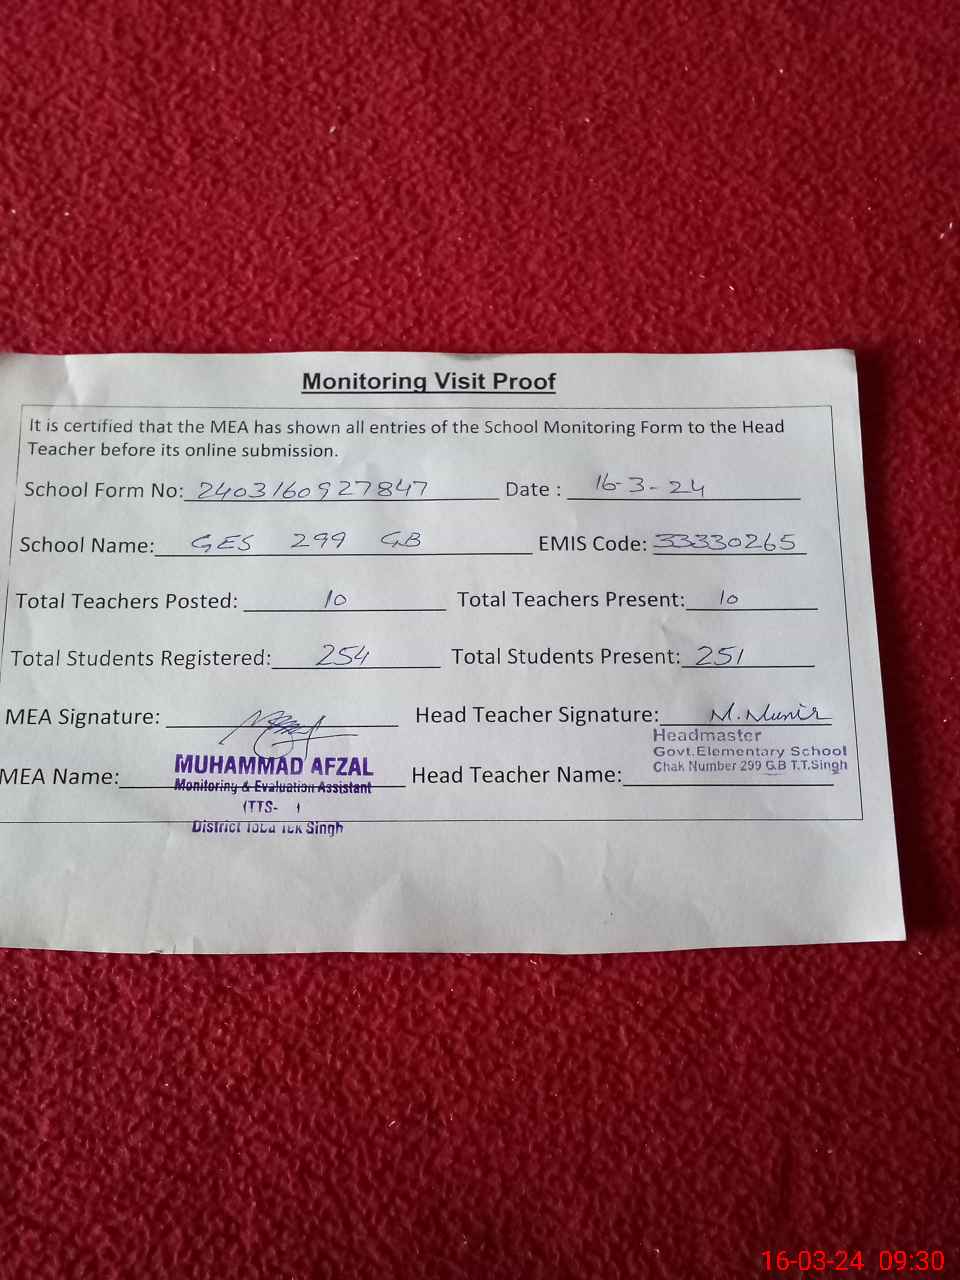 Monitoring Visit Proof
It is certified that the MEA has shown all entries of the School Monitoring Form to the Head
Teacher before its online submission.
School Form No: 2403160927847 Date : 16-3-24
School Name: GES 299 GB EMIS Code: 33330265
Total Teachers Posted: 10 Total Teachers Present: 10
Total Students Registered: 254 Total Students Present: 251
MEA Signature: Head Teacher Signature: M. Munir
Headmaster
Govt. Elementary School
Chak Number 299 G.B T.T.Singh
MEA Name: MUHAMMAD AFZAL Head Teacher Name:
Monitoring & Evaluation Assistant
(TTS- )
District Toba Tek Singh
16-03-24 09:30